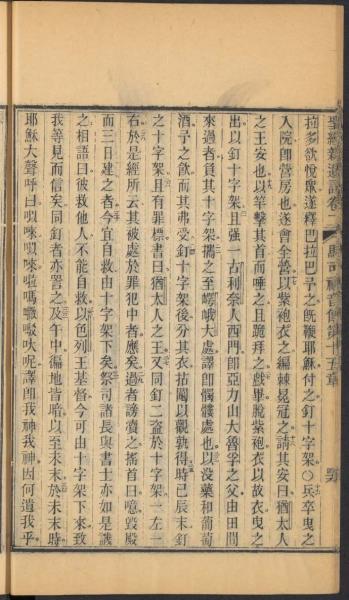 聖經新遺詔卷二 馬可福音傳第十五章
拉多欲悅衆遂釋巴拉巴予之旣鞭耶穌付之釘十字架○兵卒曳之
入院卽營房也遂會全營以紫袍衣之編棘冕冠之請其安曰猶太人
之王安也以竿擊其首而唾之且跪拜之戲畢脫紫袍衣以故衣曳之
出以釘十字架且强一古利奈人西門卽亞力山大魯孚之父由田間
來過者負其十字架攜之至嶧峨大處譯卽髑髏處也以沒藥和葡萄
酒予之飮而其弗受釘十字架後分其衣拈鬮以觀孰得時已辰末釘
之十字架且有罪標書曰猶太人之王又同釘二盜於十字架一左一
右於是經所云其被處於罪犯中者應矣過者謗瀆之搖首曰噫毀殿
而三日建之者今宜自救由十字架下矣祭司諸長與書士亦如是譏
之相語曰彼救他人不能自救以色列王基督今可由十字架下來致
我等見而信矣同釘者亦詈之及午中徧地皆暗以至未末於未末時
耶穌大聲呼曰以唻以唻啦嗎 呔呢譯卽我神我神因何遺我乎